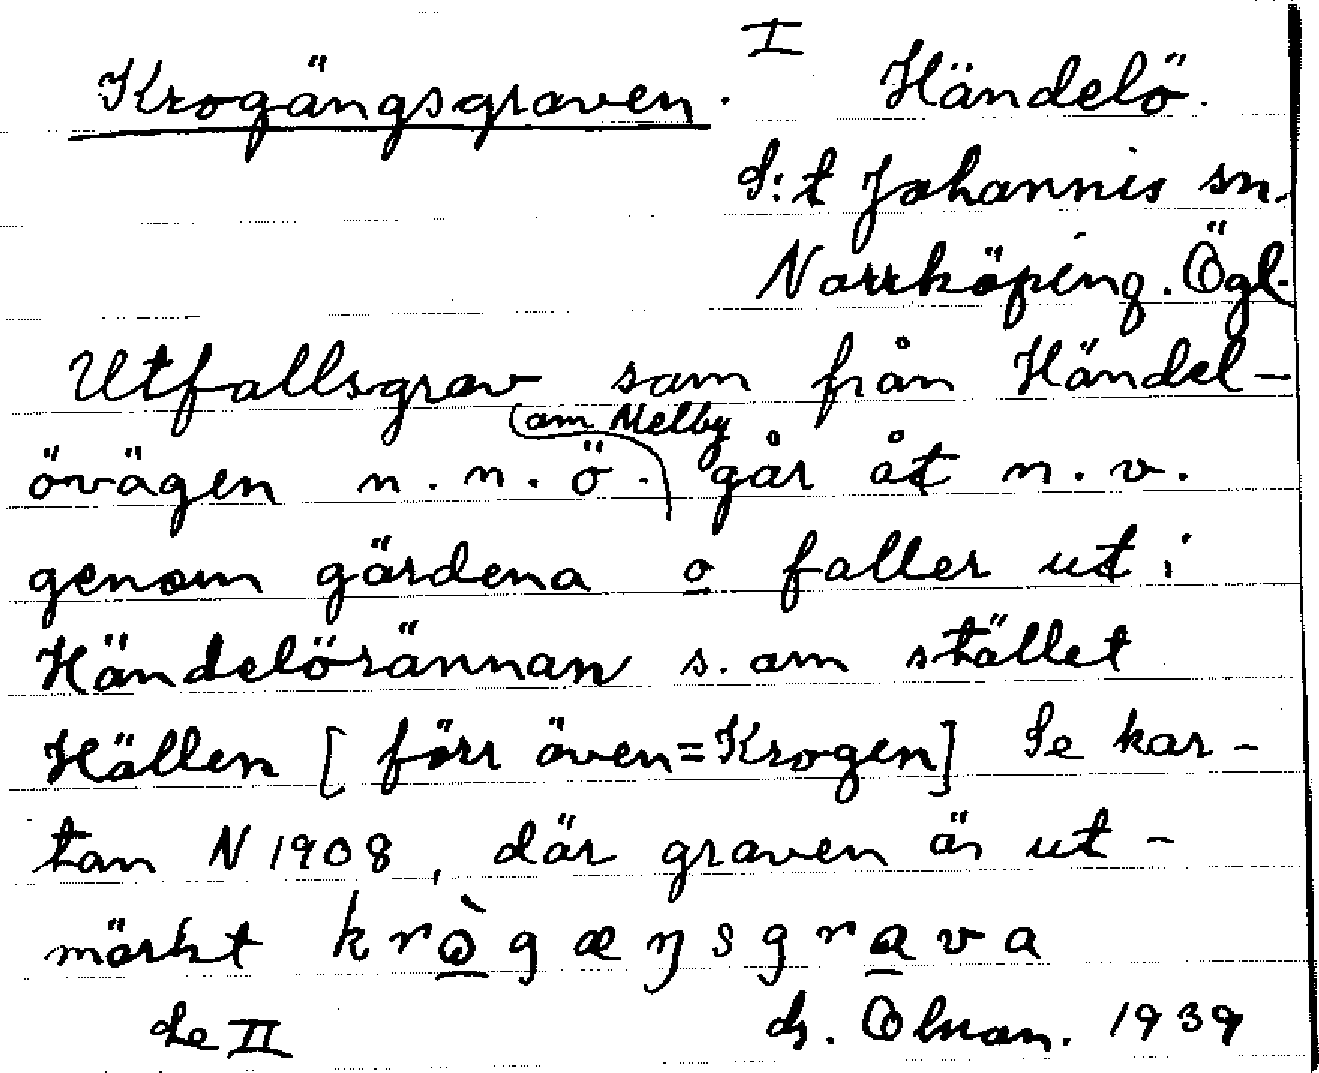 I
Krogängsgraven. Händelö.
S:t Johannis sn.
Norrköping. Ögl.
Utfallsgrav som från Händel-
(om Melby
övägen n.n.ö.) går åt n.v.
genom gärdena o faller ut i
Händelörännan s. om stället
Hällen [förr även=Krogen] Se kar-
tan N 1908, där graven är ut-
märkt krògæŋsgrava
Se II 1939